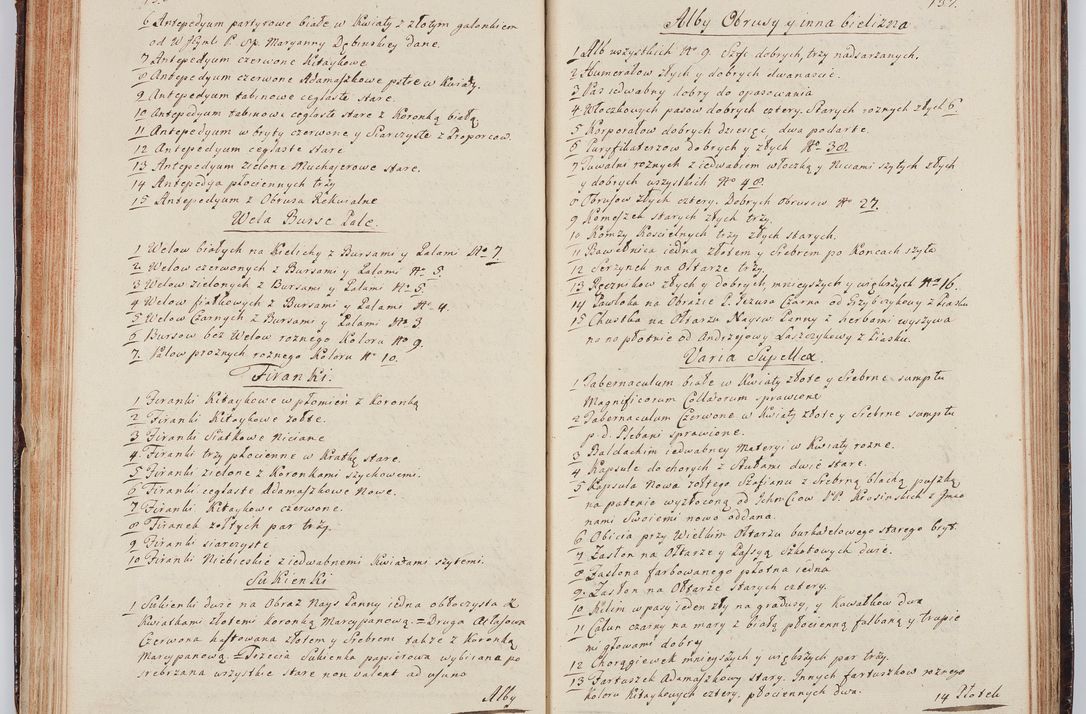 6 Antepedyum partyrowe białe w Kwiaty z złotym galonkiem
od W Hynli P. Sp. Maryanny Dębinskiey dane.
7 Antepedyum czerwone Kitaykowe
8 Antepedyum czerwone Adamaszkowe pstre w Kwiaty.
9 Antepedyum tabinowe ceglaste stare.
10 Antepedyum tabinowe ceglaste stare z Koronką białą
11 Antepedyum w bryty czerwone y Siarczyste z Proporcow.
12 Antepedyum ceglaste stare
13 Antepedyum zielone Muchajerowe stare.
14 Antepedya płociennych trzy
15 Antepedyum z Obrusa Rekwialne
Wela Burse Pale.
1 Welow białych na Kielichy z Bursami y Palami No 7
2 Welow czerwonych z Bursami y Palami No 5.
3 Welow zielonych z Bursami y Palami No 5
4 Welow fiałkowych z Bursami y Palami No 4.
5 Welow Czarnych z Bursami y Palami No 3
6 Bursow bez Welow roznego Koloru No 9.
7. Palow proznych roznego Koloru No 10.
Firanki.
1 Firanki Kitaykowe w płomień z Koronką
2 Firanki Kitaykowe żołte.
3 Firanki Siatkowe Niciane
4. Firanki trzy płocienne w Kratkę stare.
5 Firanki zielone z Koronkami Szychowemi.
6 Firanki ceglaste Adamaszkowe Nowe.
7 Firanki Kitaykowe czerwone.
8 Firanek zołtych par trzy.
9 Firanki siarczyste
10 Firanki Niebieskie z iedwabnemi Kwiatami szytemi.
Sukienki
1 Sukienki dwie na Obraz Nays Panny iedna obłoczysta z
Kwiatkami złotemi koronką Marcypanową. = Druga Atłasowa
Czerwona haftowana złotem y Srebrem także z Koronką
Marcypanową. = Trzecia Sukienka papierowa wybijana po
srebrzana wszystkie stare non valent ad usum
Alby
Alby Obrusy y inna bielizna
1 Alb wszystkich No 9. Sześć dobrych, trzy nadszarzanych.
2 Humerałow złych y dobrych dwanaście.
3 Pas iedwabny dobry do opasowania
4 Włoczkowych pasow dobrych cztery. Starych roznych złych 6
5 Korporałow dobrych dziesięć, dwa podarte.
6 Puryfikaterzow dobrych y złych No 38.
7 Tuwalni roznych z iedwabiem włoczką y Niciami szytych złych
y dobrych wszystkich No 48.
8 Obrusow złych cztery. Dobrych Obrusow No 27.
9 Komeszek starych złych trzy.
10. Komży Koscielnych trzy złych starych.
11 Bawełnica iedna złotem y Srebrem po Koncach szyta
12 Serzynek na Ołtarze trzy.
13 Ręcznikow złych y dobrych, mnieyszych y większych No 16.
14 Zawłoka na Obrazie P. Jezusa Czarna od Grzybczykowy z Piasku
15 Chustka na Ołtarzu Nayśw: Panny z herbami wyszywa
na na płotnie od Andrzejowy Łaszczykowy z Piasku.
Varia Supellex.
1 Tabernaculum białe w Kwiaty złote y Srebrne sumptu
Magnificorum Collatorum sprawione
2 Tabernaculum Czerwone w Kwiaty złote y Srebrne sumptu
p. d. Plebani sprawione.
3 Baldachim iedwabney Materyi w Kwiaty rozne.
4 Kapsułe do chorych z Stułami dwie stare.
5 Kapsuła Nowa żołtego Szafianu z Srebrną blachą puszką
na patenie wyzłoconą od Jchmciow PP. Krasinskich z Jmio
nami Swoiemi nowo oddana.
6 Obicia przy Wielkim Ołtarzu burkatelowego starego bryt.
7 Zasłon na Ołtarze y Passyą Szkotowych dwie.
8 Zasłona farbowanego płotna iedna
9. Zasłon na Ołtarze Starych cztery.
10 Kilim w pasy ieden zły na gradusy, y Kawałkow dwa
11 Całun czarny na mary z białą płocienną falbaną y trupie
mi głowami dobry
12 Chorągiewek mnieyszych y większych par trzy.
13 Fartuszek Adamaszkowy stary. Innych fartuszkow roznego
Koloru Kitaykowych cztery, płociennych dwa.
14 Płotek